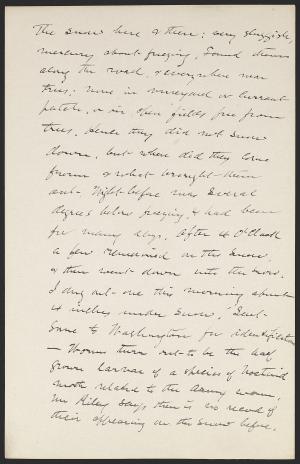 The snow here & there; very sluggish,
mercury about freezing. Found them
along the road, & everywhere near
trees; none in vineyard or currant
patch, or in open fields free from
trees. Hence they did not snow
down, but where did they come
from & what brought them
out. Night before was several
degrees below freezing, & had been
for many days. After 4 O'clock
a few remained on the snow,
& then went down into the snow.
I dug out one this morning about
4 inches under snow. Sent
some to Washington for identification
— Worms turn out to be the half
grown larvae of a species of Noctuid
moth related to the army worm.
Mr Riley says there is no record of
their appearing on the snow before.